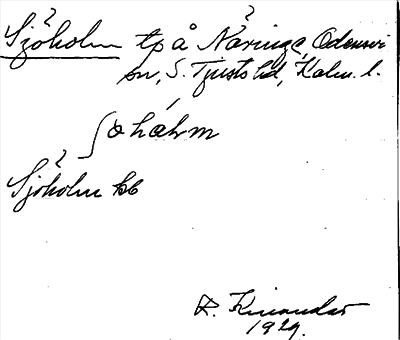 Sjöholm tp å Näringe, Odensvi
sn, S. Tjusts hd, Kalm. l.
ʃøhɷlm
Sjöholm kb
R. Kinander
1929.